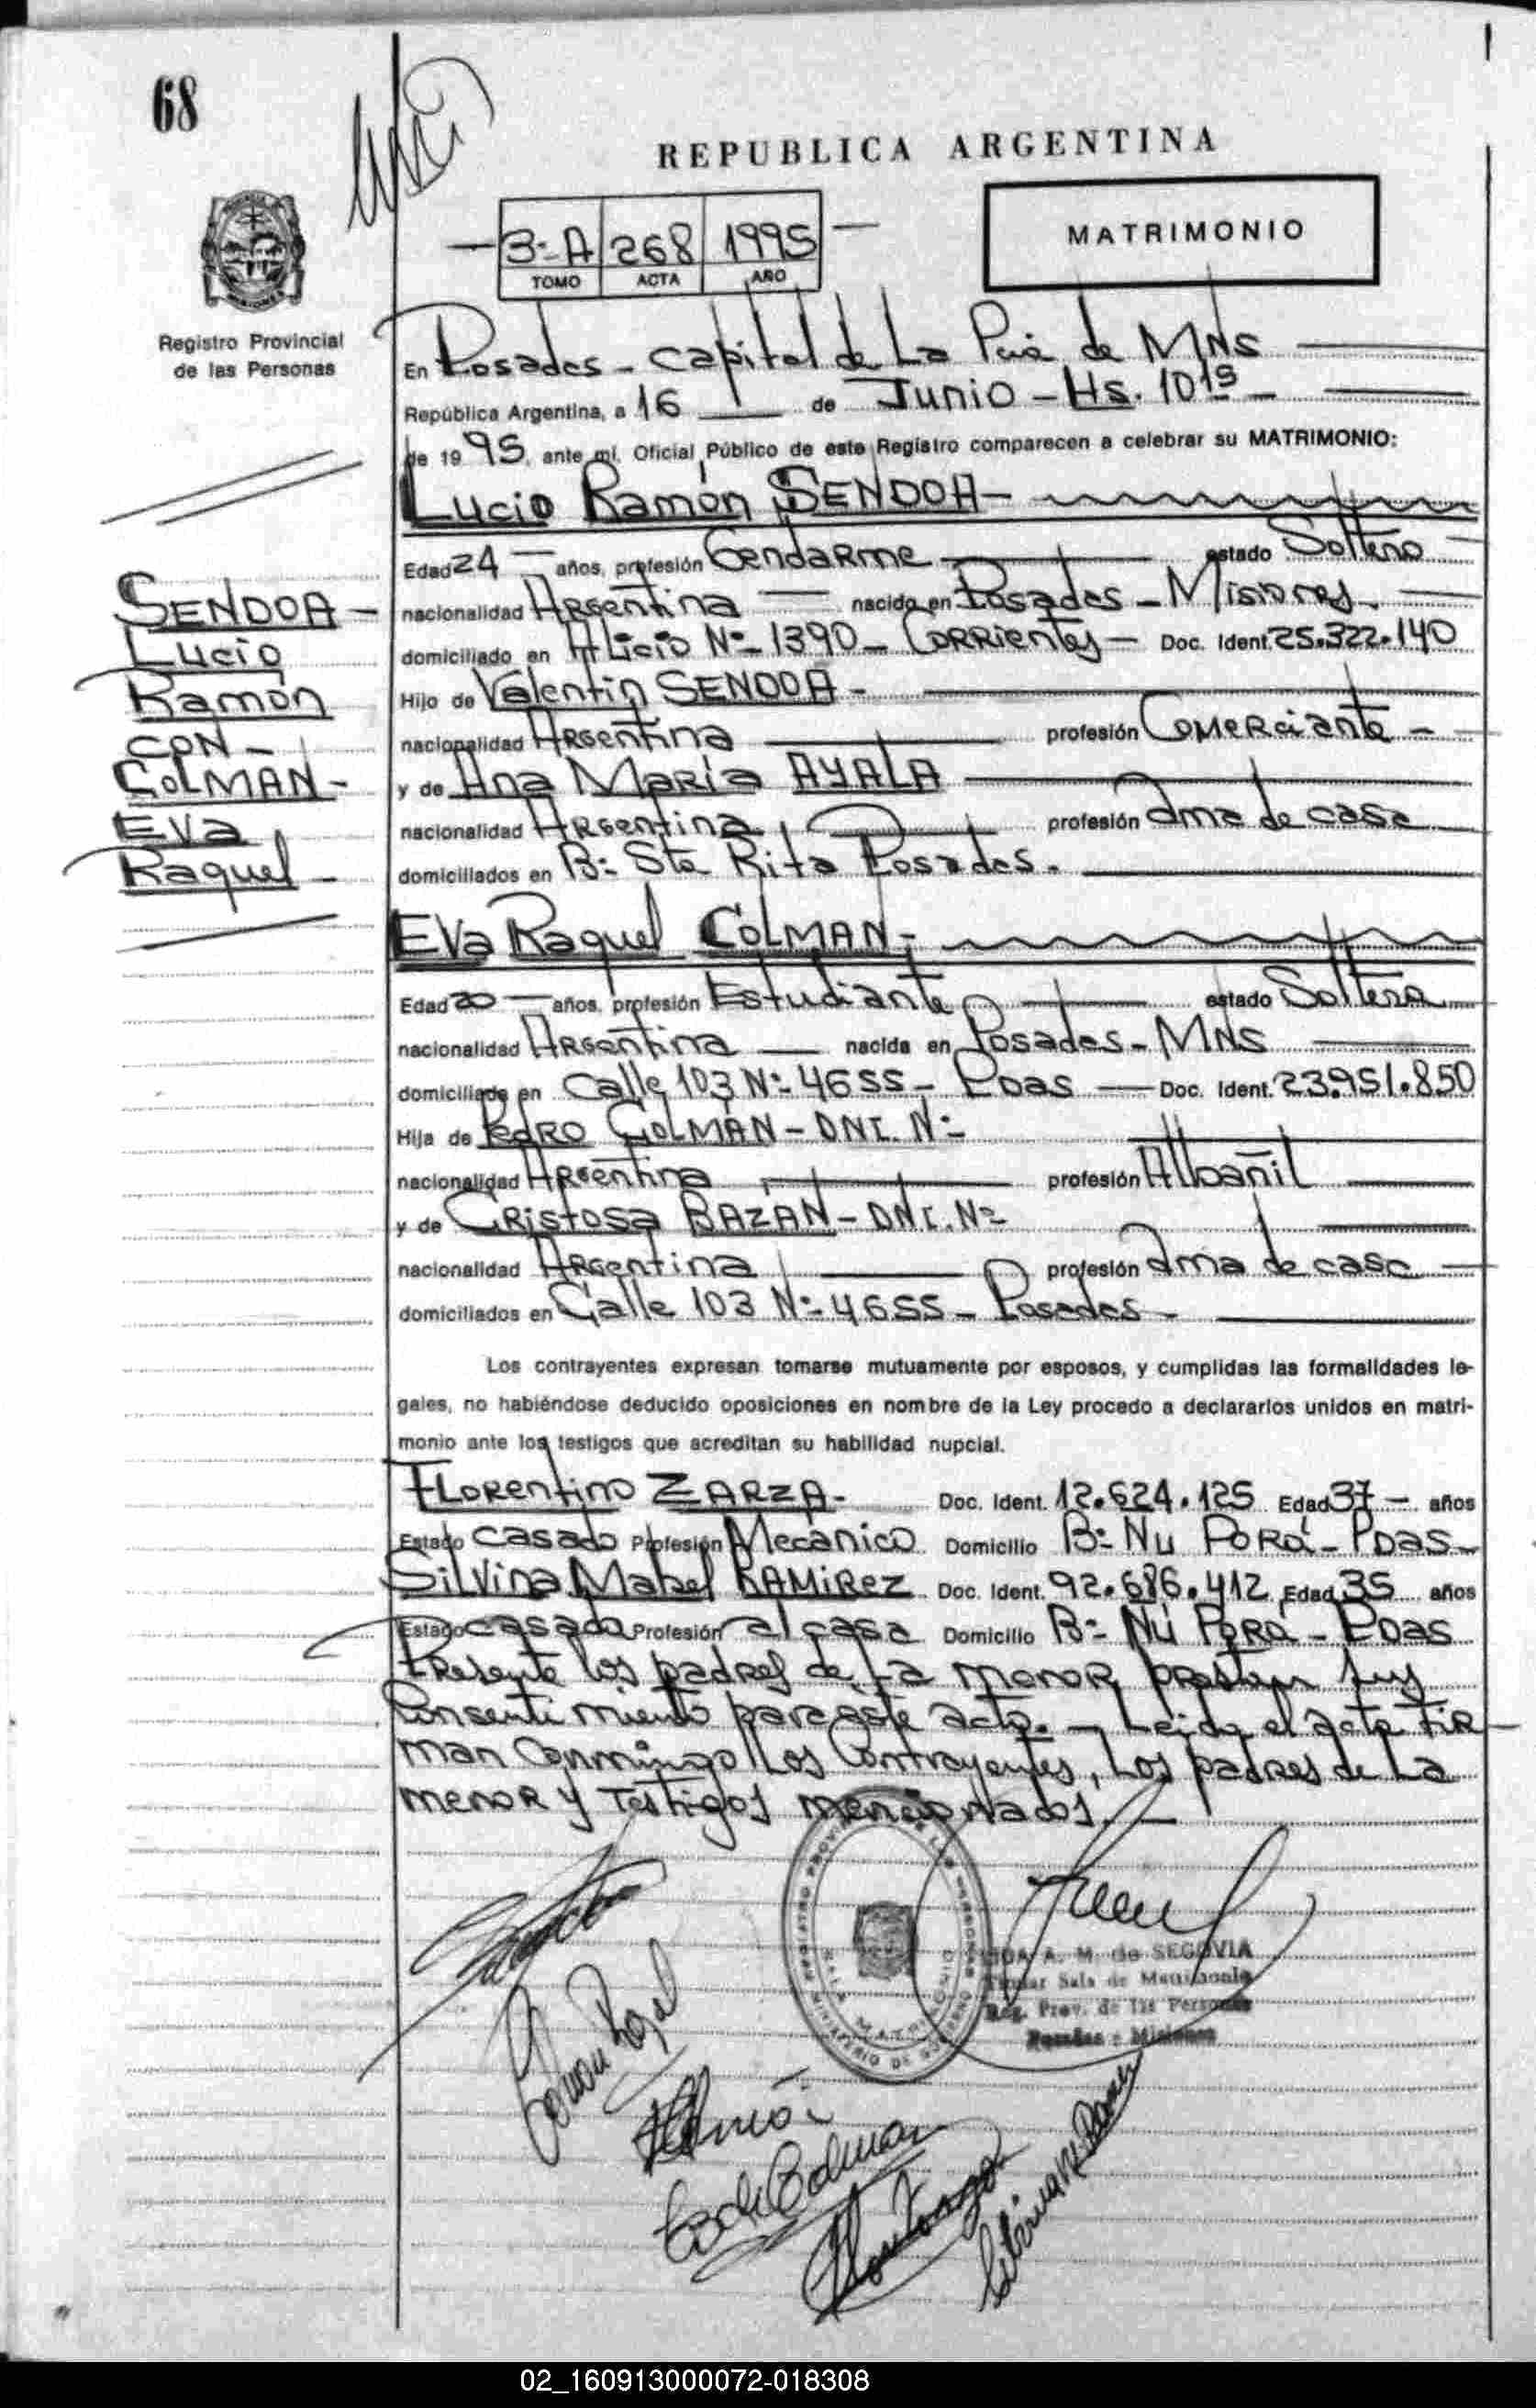 68
REPUBLICA ARGENTINA
3-A 268 1995
TOMO ACTA AÑO
MATRIMONIO
Registro Provincial
de las Personas
En Posadas - Capital de La Pcia de MNS
República Argentina, a 16 de Junio - Hs. 10 15 -
de 1995, ante mí, Oficial Público de este Registro comparecen a celebrar su MATRIMONIO:
Lucio Ramón SENDOA -
Edad 24 - años, profesión Gendarme estado Soltero
nacionalidad Argentina - nacido en Posadas - Misiones
domiciliado en Alicio Nº 1390 - Corrientes - Doc. Ident. 25.322.140
Hijo de Valentin SENDOA -
nacionalidad Argentina profesión Comerciante -
y de Ana María AYALA
nacionalidad Argentina profesión ama de casa
domiciliados en B: Sta Rita Posadas.
SENDOA -
Lucio
Ramón
CON -
COLMAN -
Eva
Raquel -
Eva Raquel COLMAN -
Edad 20 - años, profesión Estudiante estado Soltera
nacionalidad Argentina - nacida en Posadas - MNS
domiciliada en Calle 103 Nº 4655 - Pdas - Doc. Ident. 23.951.850
Hija de Pedro COLMAN - DNI. Nº
nacionalidad Argentina profesión Albañil
y de Cristosa BAZAN - DNI. Nº
nacionalidad Argentina profesión ama de casa
domiciliados en Calle 103 Nº 4655 - Posadas -
Los contrayentes expresan tomarse mutuamente por esposos, y cumplidas las formalidades le-
gales, no habiéndose deducido oposiciones en nombre de la Ley procedo a declararlos unidos en matri-
monio ante los testigos que acreditan su habilidad nupcial.
Florentino ZARZA - Doc. Ident. 12.624.125 Edad 37 - años
Estado Casado Profesión Mecanico Domicilio B: Nu Porá - Pdas -
Silvina Mabel RAMIREZ Doc. Ident. 92.686.412 Edad 35 años
Estado casada Profesión a/ casa Domicilio B: Nú Porá - Pdas
Presente los padres de La menor prestan sus
Consentimiento para este acto. - Leida el acta fir-
man Conmingo Los Contrayentes, Los padres de La
menor y Testigos mencionados. -
REGISTRO PROVINCIAL DE LAS PERSONAS
MINISTERIO DE GOBIERNO
SALA MATRIMONIO
A. M. de SEGOVIA
Titular Sala de Matrimonio
Reg. Prov. de las Personas
Posadas - Misiones
Colman
02_160913000072-018308